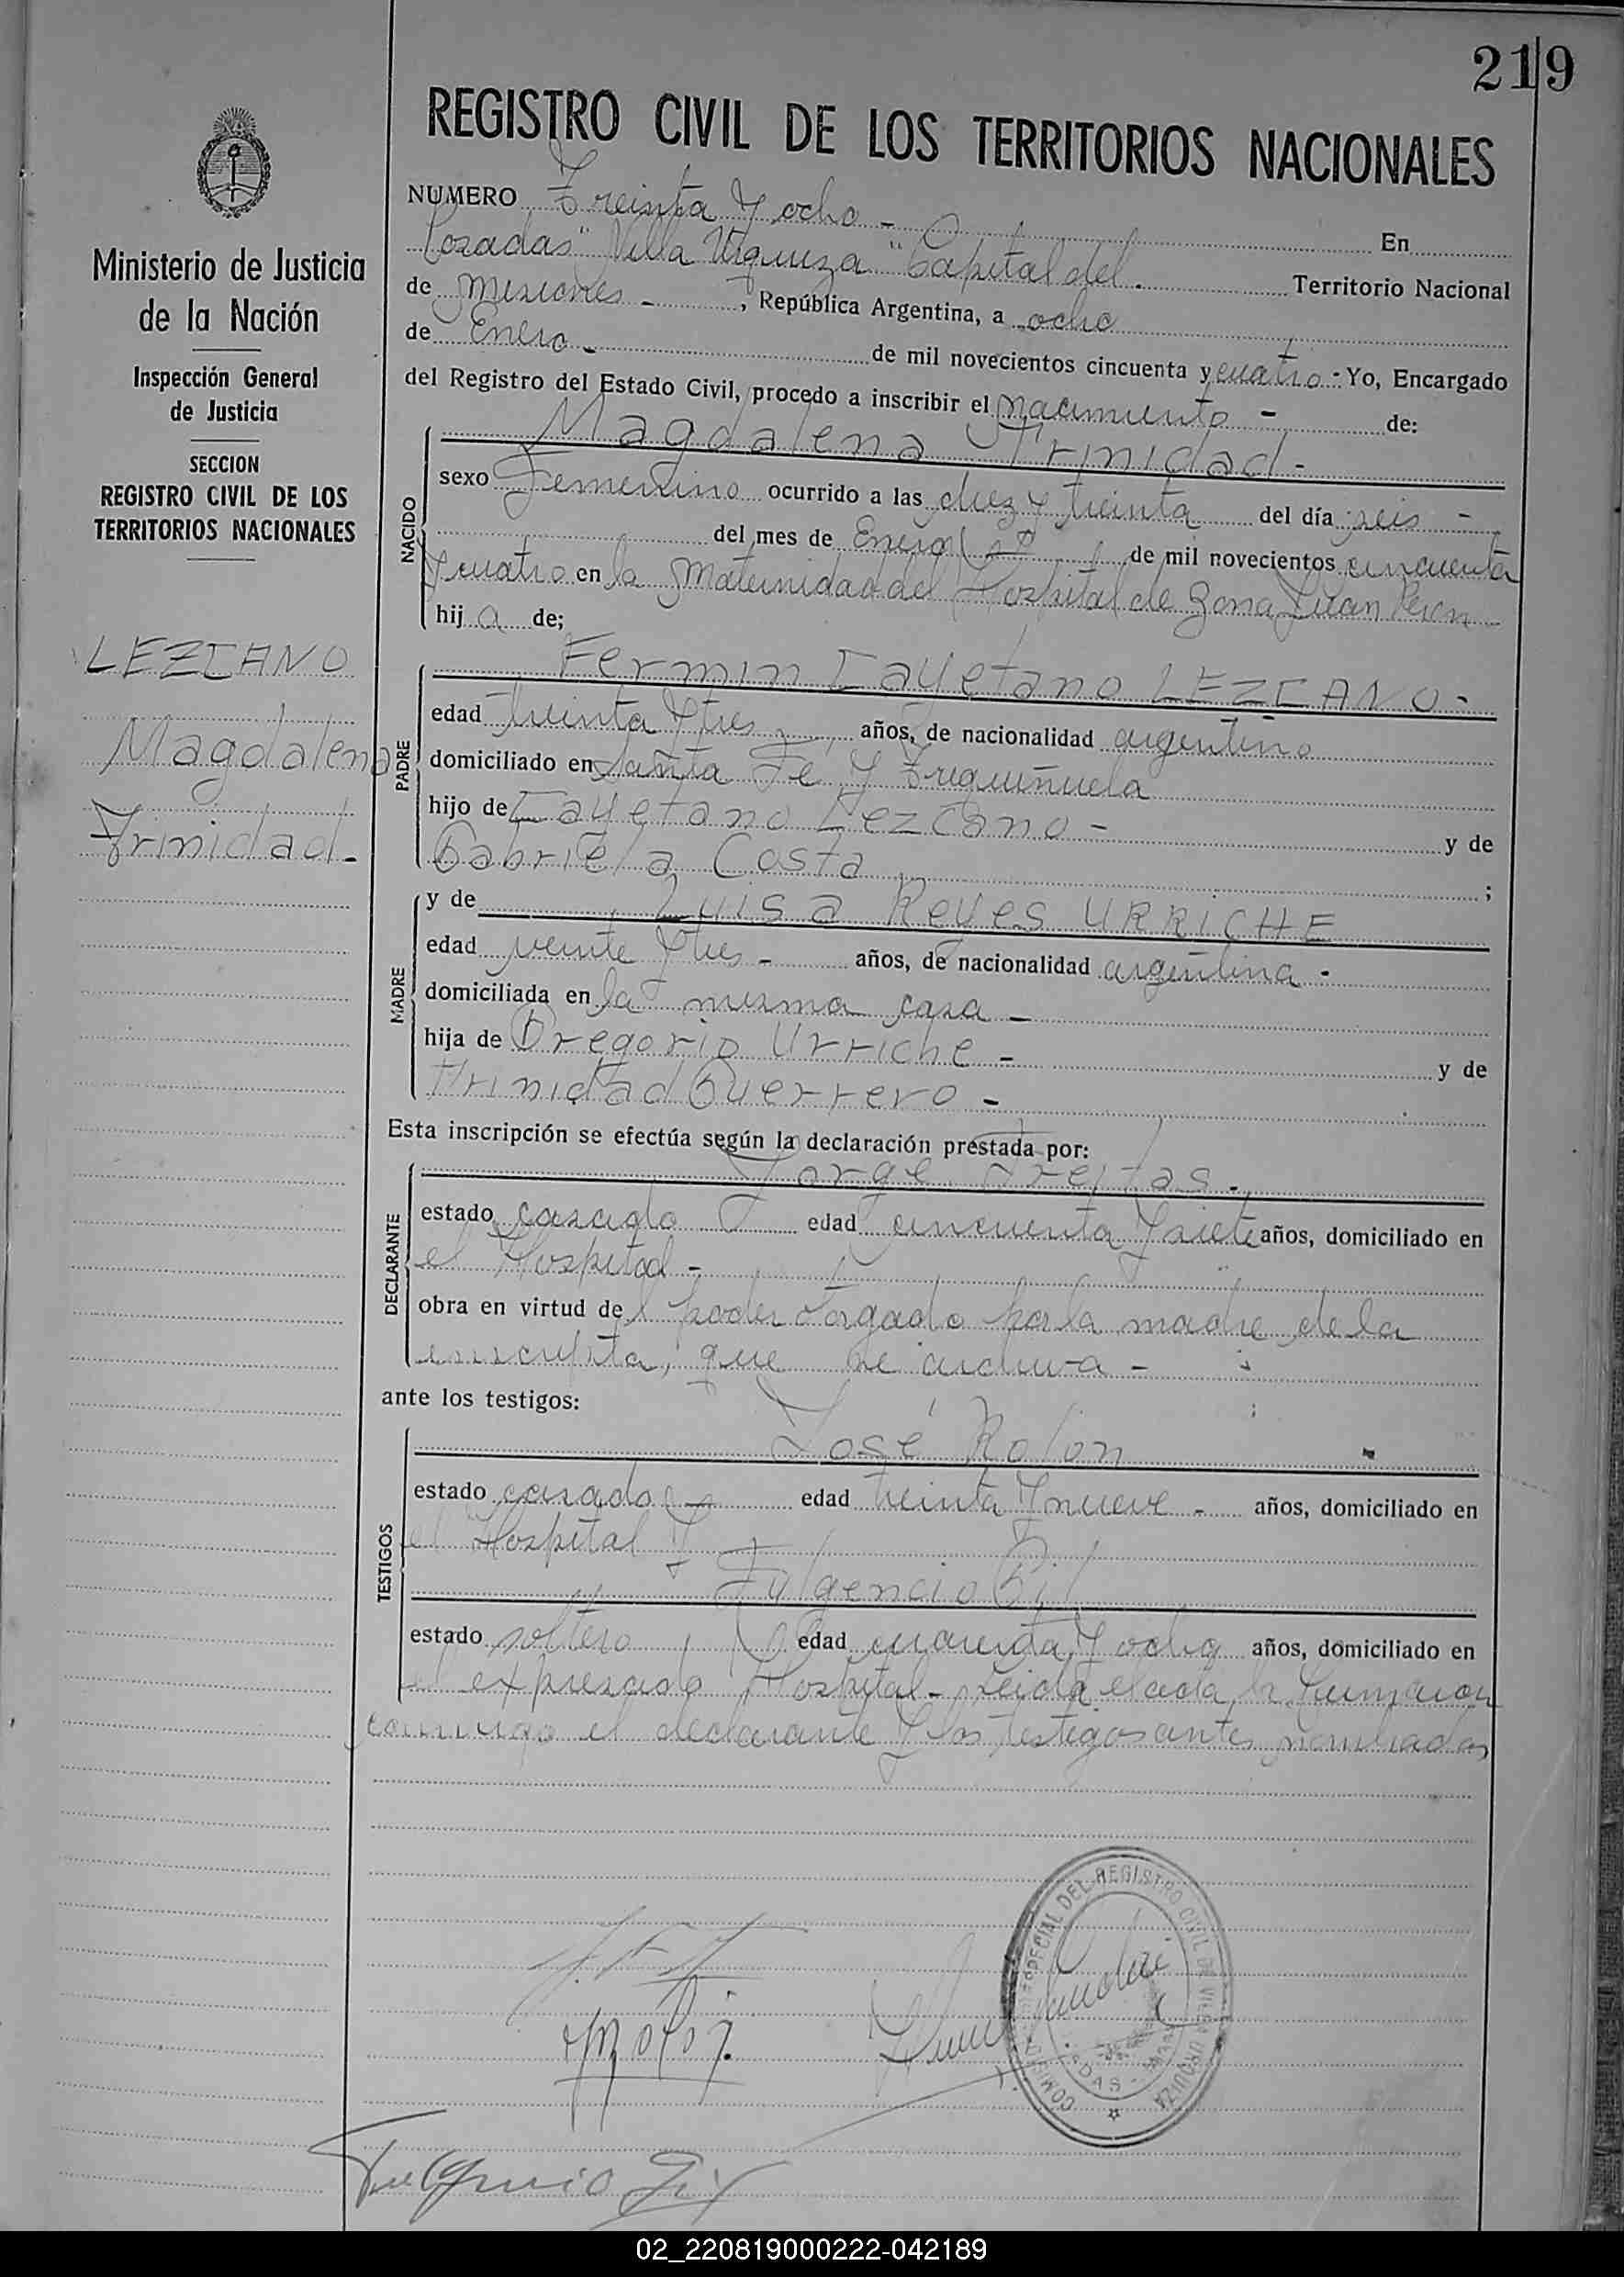 219
REGISTRO CIVIL DE LOS TERRITORIOS NACIONALES
Ministerio de Justicia
de la Nación
Inspección General
de Justicia
SECCION
REGISTRO CIVIL DE LOS
TERRITORIOS NACIONALES
LEZCANO
Magdalena
Trinidad-
NUMERO Treinta y ocho - En
Posadas "Villa Urquiza" Capital del Territorio Nacional
de Misiones - , República Argentina, a ocho
de Enero - de mil novecientos cincuenta y cuatro - Yo, Encargado
del Registro del Estado Civil, procedo a inscribir el nacimiento - de:
NACIDO
Magdalena Trinidad -
sexo Femenino ocurrido a las diez y treinta del día seis -
del mes de Enero de mil novecientos cincuenta
y cuatro en la Maternidad del Hospital de Zona Juan Perón
hij a de;
PADRE
Fermin Cayetano LEZCANO -
edad treinta y tres años, de nacionalidad argentino
domiciliado en Santa Fe y
hijo de Cayetano Lezcano - y de
Gabriela Costa ;
MADRE
y de Luisa Reyes URRICHE
edad veinte y tres - años, de nacionalidad argentina -
domiciliada en la misma casa -
hija de Gregorio Urriche - y de
Trinidad Guerrero -
Esta inscripción se efectúa según la declaración prestada por:
DECLARANTE
Jorge Freitas -
estado casado edad cincuenta y siete años, domiciliado en
el Hospital -
obra en virtud del poder otorgado por la madre de la
inscripta, que se archiva -
ante los testigos:
TESTIGOS
José Rolon -
estado casado edad treinta y nueve - años, domiciliado en
el Hospital y
Fulgencio Gil
estado soltero edad cuarenta y ocho años, domiciliado en
el expresado Hospital - Leida el acta la firmaron
conmigo el declarante y los testigos antes nombrados
ESPECIAL DEL REGISTRO CIVIL DE VILLA URQUIZA
Fulgencio Gil
02_220819000222-042189